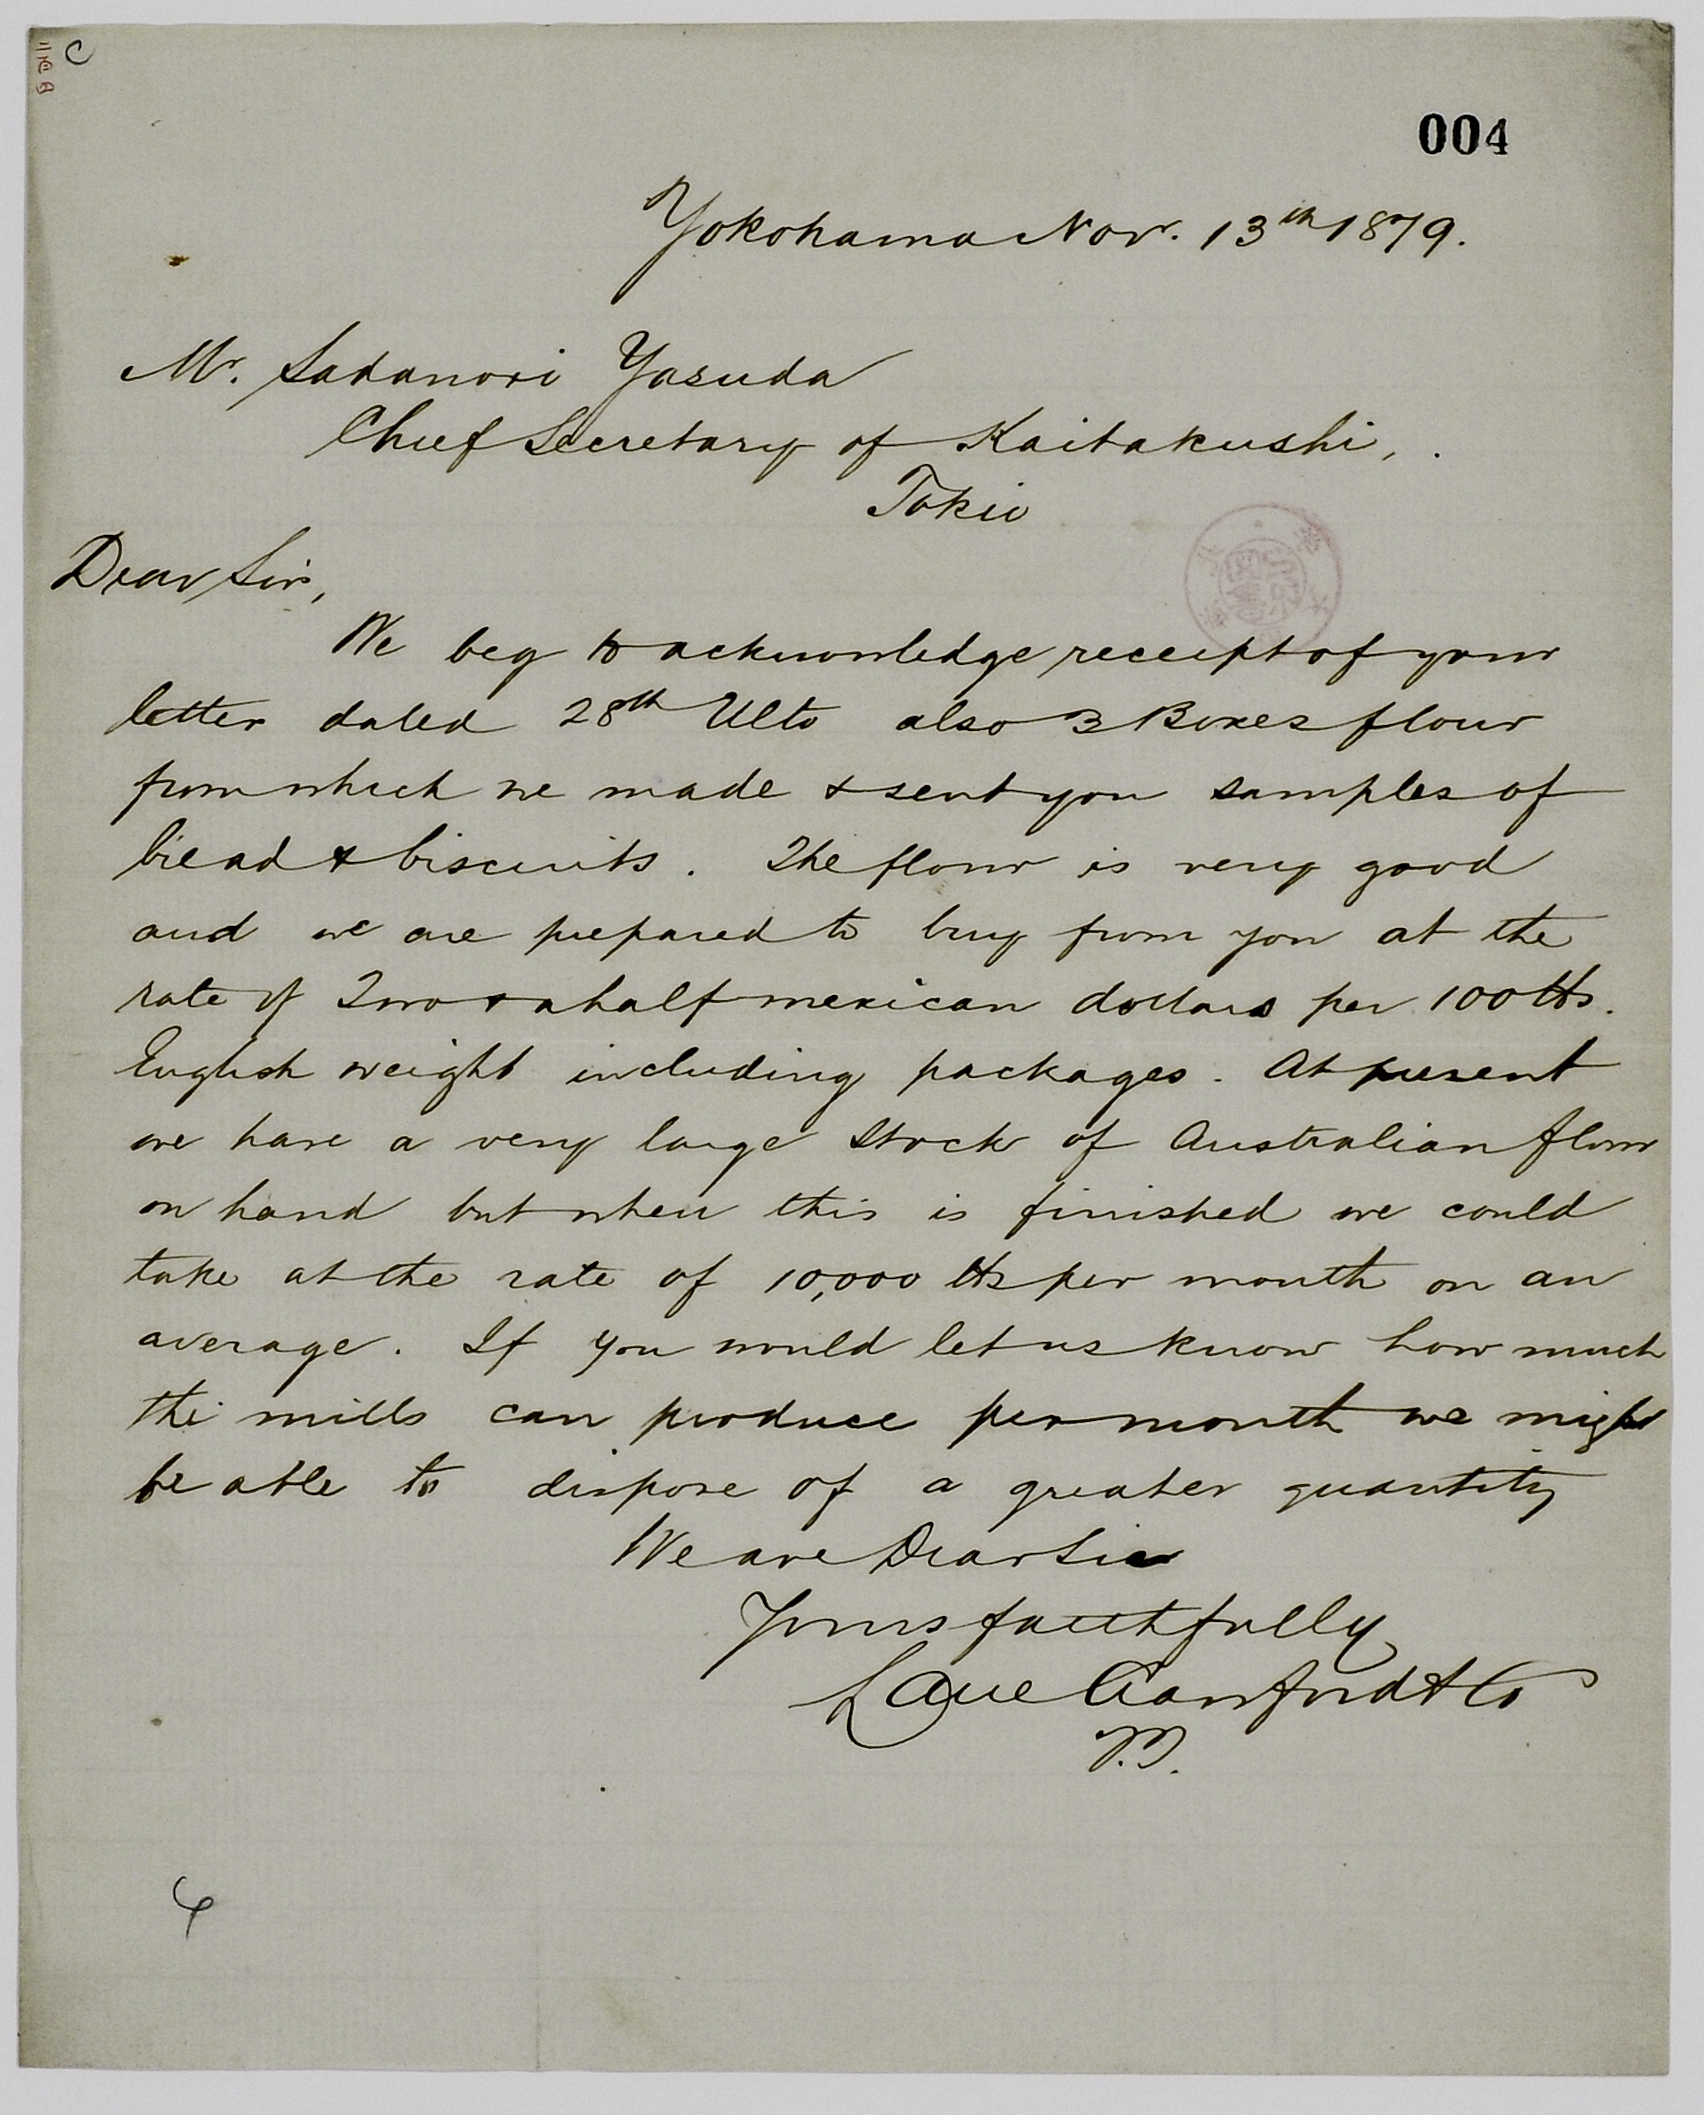 004
Yokohama Nov. 13th 1879.
Mr. Sadanori Yasuda
Chief Secretary of Kaitakushi,
Tokio
Dear Sir,
We beg to acknowledge receipt of your
letter dated 28th Ulto also 3 Boxes flour
from which we made & sent you samples of
bread & biscuits. The flour is very good
and we are prepared to buy from you at the
rate of Two & a half mexican dollars per 100 lbs.
English weight including packages. At present
we have a very large stock of Australian flour
on hand but when this is finished we could
take at the rate of 10,000 lbs per month on an
average. If you would let us know how much
the mills can produce per month we might
be able to dispose of a greater quantity
We are Dear Sir
Yours faithfully
Lane Crawford & Co